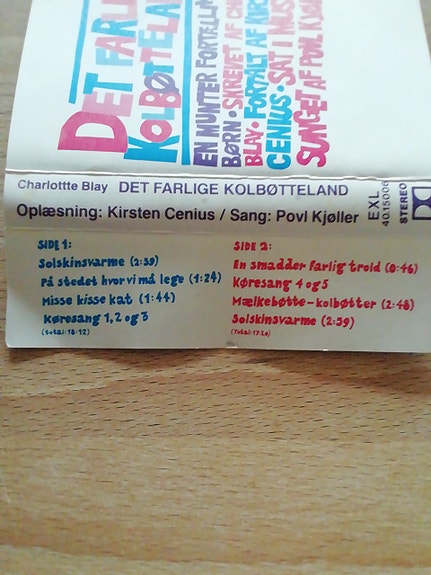 DET FARLI
KOLBØTTELA
EN MUNTER FORTÆLLI
BØRN • SKREVET AF CH
BLAY • FORTALT AF KIR
CENIUS • SAT I MUS
SUNGET AF POVL KJØ
Charlottte Blay DET FARLIGE KOLBØTTELAND
Oplæsning: Kirsten Cenius / Sang: Povl Kjøller
EXL
40.15006
STEREO
SIDE 1:
Solskinsvarme (2:59)
På stedet hvor vi må lege (1:24)
Misse kisse kat (1:44)
Køresang 1, 2 og 3
(total: 18:12)
SIDE 2:
En smadder farlig trold (0:46)
Køresang 4 og 5
Mælkebøtte-kolbøtter (2:48)
Solskinsvarme (2:59)
(Total: 17:20)